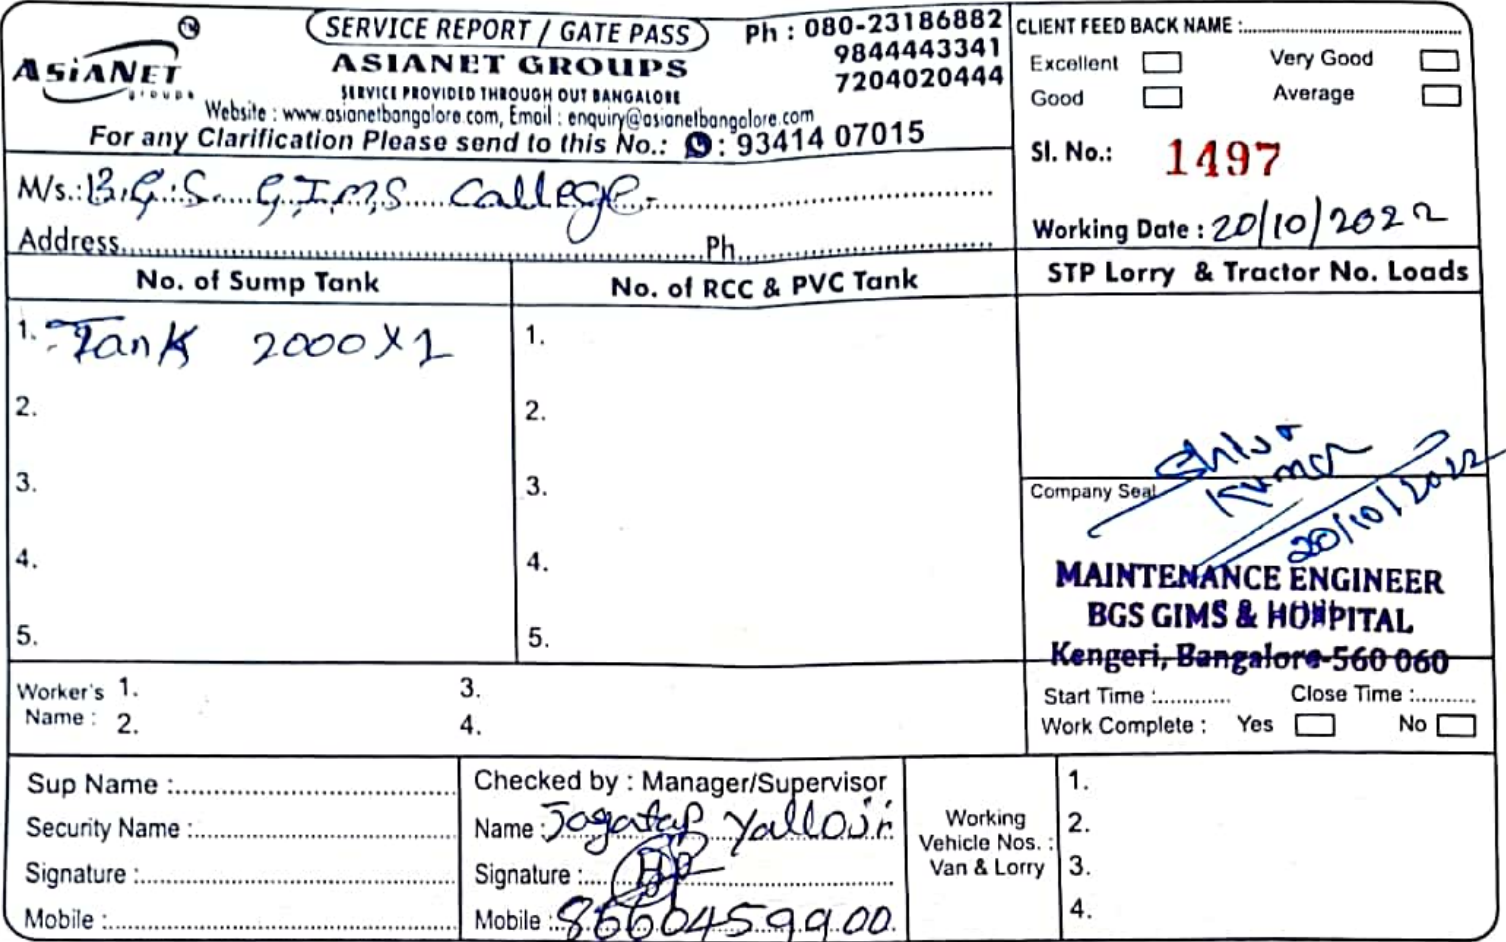 TM
ASiANET
groups
SERVICE REPORT / GATE PASS
ASIANET GROUPS
SERVICE PROVIDED THROUGH OUT BANGALORE
Website : www.asianetbangalore.com, Email : enquiry@asianetbangalore.com
For any Clarification Please send to this No.: : 93414 07015
Ph : 080-23186882
9844443341
7204020444
CLIENT FEED BACK NAME :
Excellent Very Good
Good Average
Sl. No.: 1497
Working Date : 20/10/2022
M/s.: B.G.S. G.I.M.S College
Address Ph
No. of Sump Tank
1. Tank 2000 X 1
2.
3.
4.
5.
No. of RCC & PVC Tank
1.
2.
3.
4.
5.
STP Lorry & Tractor No. Loads
Company Seal
Kumar
20/10/2022
MAINTENANCE ENGINEER
BGS GIMS & HOSPITAL
Kengeri, Bangalore-560 060
Worker's Name : 1. 3.
2. 4.
Start Time : Close Time :
Work Complete : Yes No
Sup Name :
Security Name :
Signature :
Mobile :
Checked by : Manager/Supervisor
Name : Jagatap
Signature :
Mobile : 8660459900
Working
Vehicle Nos. :
Van & Lorry
1.
2.
3.
4.